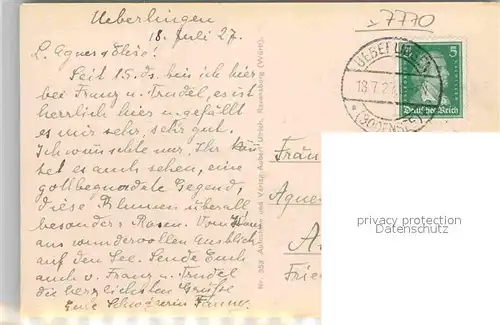 Ueberlingen
18. Juli 27.
L. Agnes u. Elise!
Seit 15. ds. bin ich hier
bei Franz u. Trudel, es ist
herrlich hier u. gefällt
es mir sehr, sehr gut.
Ich wünschte nur, Ihr
es auch sehen, eine
gottbegnadete Gegend,
diese Blumen überall
besonders Rosen. Vom Haus
aus wundervollen Ausblick
auf den See. Sende Euch
auch v. Franz u. Trudel
die herzlichsten Grüße
Eure Schwägerin Fanny.
Nr. 353 Aufnahme und Verlag Ulrich, Ravensburg (Württ).
7770
UEBERLINGEN
18.7.27
(BODENSEE)
5
Deutsches Reich
Fräu
Agnes
A
Frie
privacy protection
Datenschutz